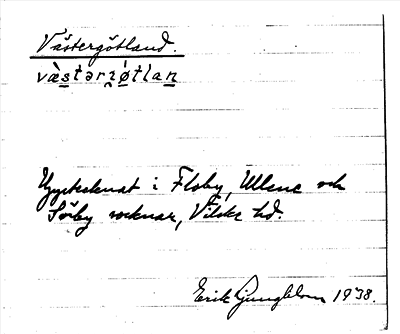 Västergötland.
væ̀stərjö́tlan
Upptecknat i Floby, Ullene och
Sörby socknar, Vilske hd.
Erik Ljungblom 1938.